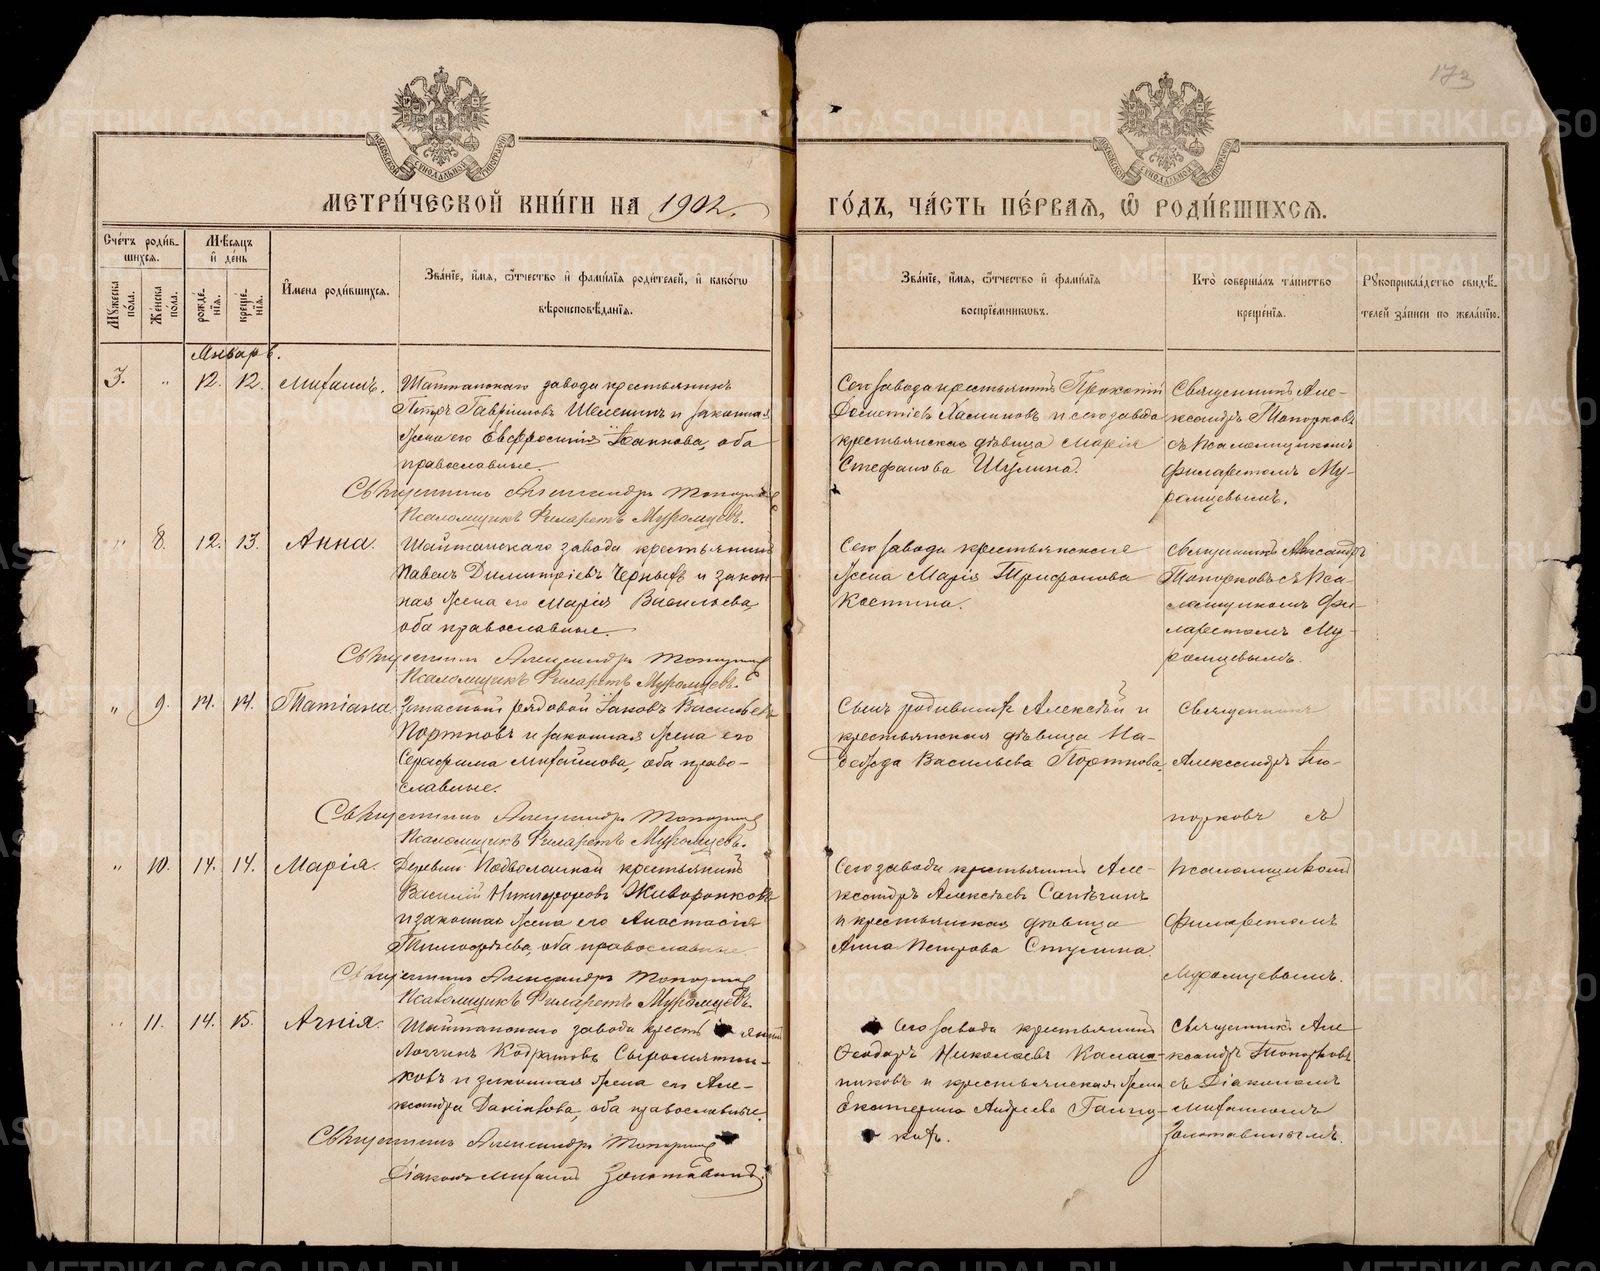 173
МОСКОВСКОЙ СУНОДАЛЬНОЙ ТИПОГРАФІИ
МОСКОВСКОЙ СУНОДАЛЬНОЙ ТИПОГРАФІИ
МЕТРИ́ЧЕСКОЙ КНИ́ГИ НА 1902.
ГО́ДЪ, ЧА́СТЬ ПЕ́РВАѦ, Ѽ РОДИ́ВШИХСѦ.
Сче́тъ роди́в-
шихсѧ.
Мꙋжеска по́ла.
Же́нска по́ла.
Мѣ́сѧцъ
и҆ де́нь
рожде́-
нїѧ.
креще́-
нїѧ.
И҆мена̀ роди́вшихсѧ.
Зва́нїе, и҆́мѧ, ѻ҆́тчество и҆ фами́лїѧ роди́телей, и҆ како́гѡ
вѣроисповѣ́данїѧ.
Зва́нїе, и҆́мѧ, ѻ҆́тчество и҆ фами́лїѧ
воспрїе́мникѡвъ.
Кто̀ соверша́лъ та́инство
креще́нїѧ.
Рꙋкоприкла́дство свидѣ́-
телей за́писи по жела́нїю.
Январь.
3. " 12. 12. Михаилъ.
Шайтанскаго завода крестьянинъ
Петръ Гавріиловъ и законная
жена его Евфросинія Іоаннова, оба
православные.
Священникъ Александръ Топорковъ
Псаломщикъ Филаретъ Муромцевъ.
Сего завода крестьянинъ
и сего завода
крестьянская дѣвица Марія
Стефанова Шулина.
Священникъ Але-
ксандръ Топорковъ
съ Псаломщикомъ
Филаретомъ Му-
ромцевымъ.
" 8. 12. 13. Анна.
Шайтанскаго завода крестьянинъ
Павелъ Димитріевъ Черныхъ и закон-
ная жена его Марія Васильева,
оба православные.
Священникъ Александръ Топорковъ
Псаломщикъ Филаретъ Муромцевъ.
Сего завода крестьянская
жена Марія Трифонова
Костина.
Священникъ Александръ
Топорковъ съ Пса-
ломщикомъ Фи-
ларетомъ Му-
ромцевымъ.
" 9. 14. 14. Татіана.
Запасный рядовой Іаковъ Васильевъ
Портновъ и законная жена его
Серафима Михайлова, оба право-
славные.
Священникъ Александръ Топорковъ
Псаломщикъ Филаретъ Муромцевъ.
Сынъ Алексѣй и
крестьянская дѣвица На-
дежда Васильева Портнова.
Священникъ
Александръ То-
порковъ съ
Псаломщикомъ
Филаретомъ
Муромцевымъ.
" 10. 14. 14. Марія.
Деревни Подволошной крестьянинъ
Василій Никифоровъ Живоронковъ
и законная жена его Анастасія
Тимофѣева, оба православные
Священникъ Александръ Топорковъ
Псаломщикъ Филаретъ Муромцевъ.
Сего завода крестьянинъ Але-
ксандръ Алексѣевъ
и крестьянская дѣвица
Анна Петрова Стулина.
" 11. 14. 15. Агнія.
Шайтанскаго завода крестьянинъ
Логгинъ Кодратовъ Сыромятни-
ковъ и законная жена его Але-
ксандра Даніилова, оба православные.
Священникъ Александръ Топорковъ
Діаконъ Михаилъ Золотавинъ.
Сего завода крестьянинъ
Ѳеодоръ Николаевъ Калаш-
никовъ и крестьянская жена
Екатерина Андреева
Священникъ Але-
ксандръ Топорковъ
съ Діакономъ
Михаиломъ
Золотавинымъ.
METRIKI.GASO-URAL.RU